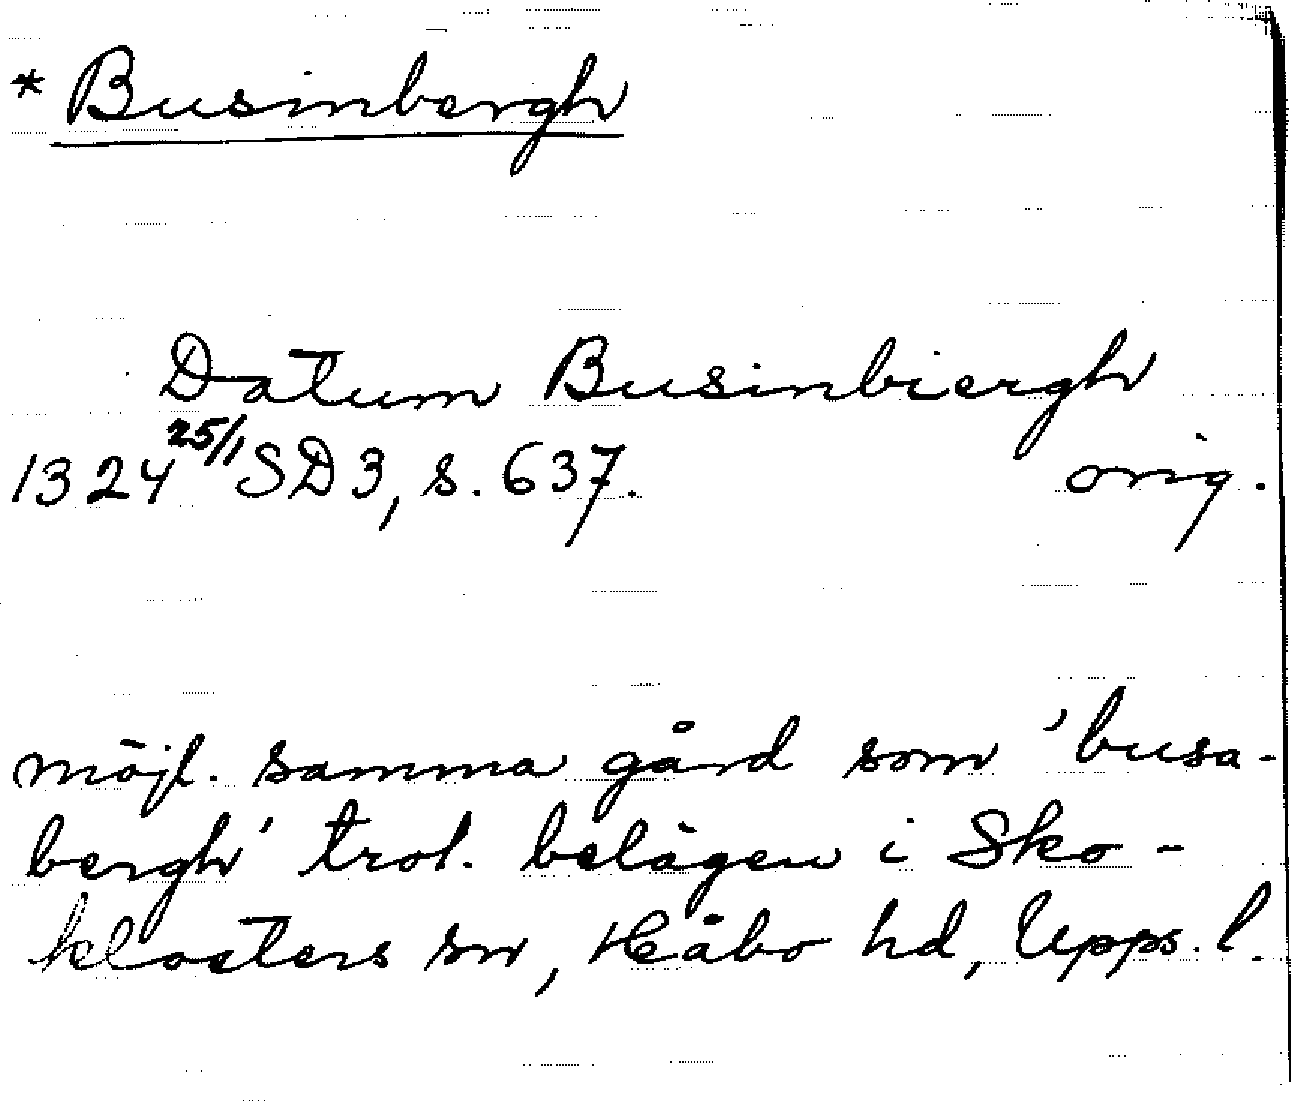 * Businbergh
Datum Businbiergh
1324 25/1 SD3, s. 637. orig.
möjl. samma gård som 'busa-
bergh' trol. belägen i Sko-
klosters sn, Håbo hd, Upps. l.